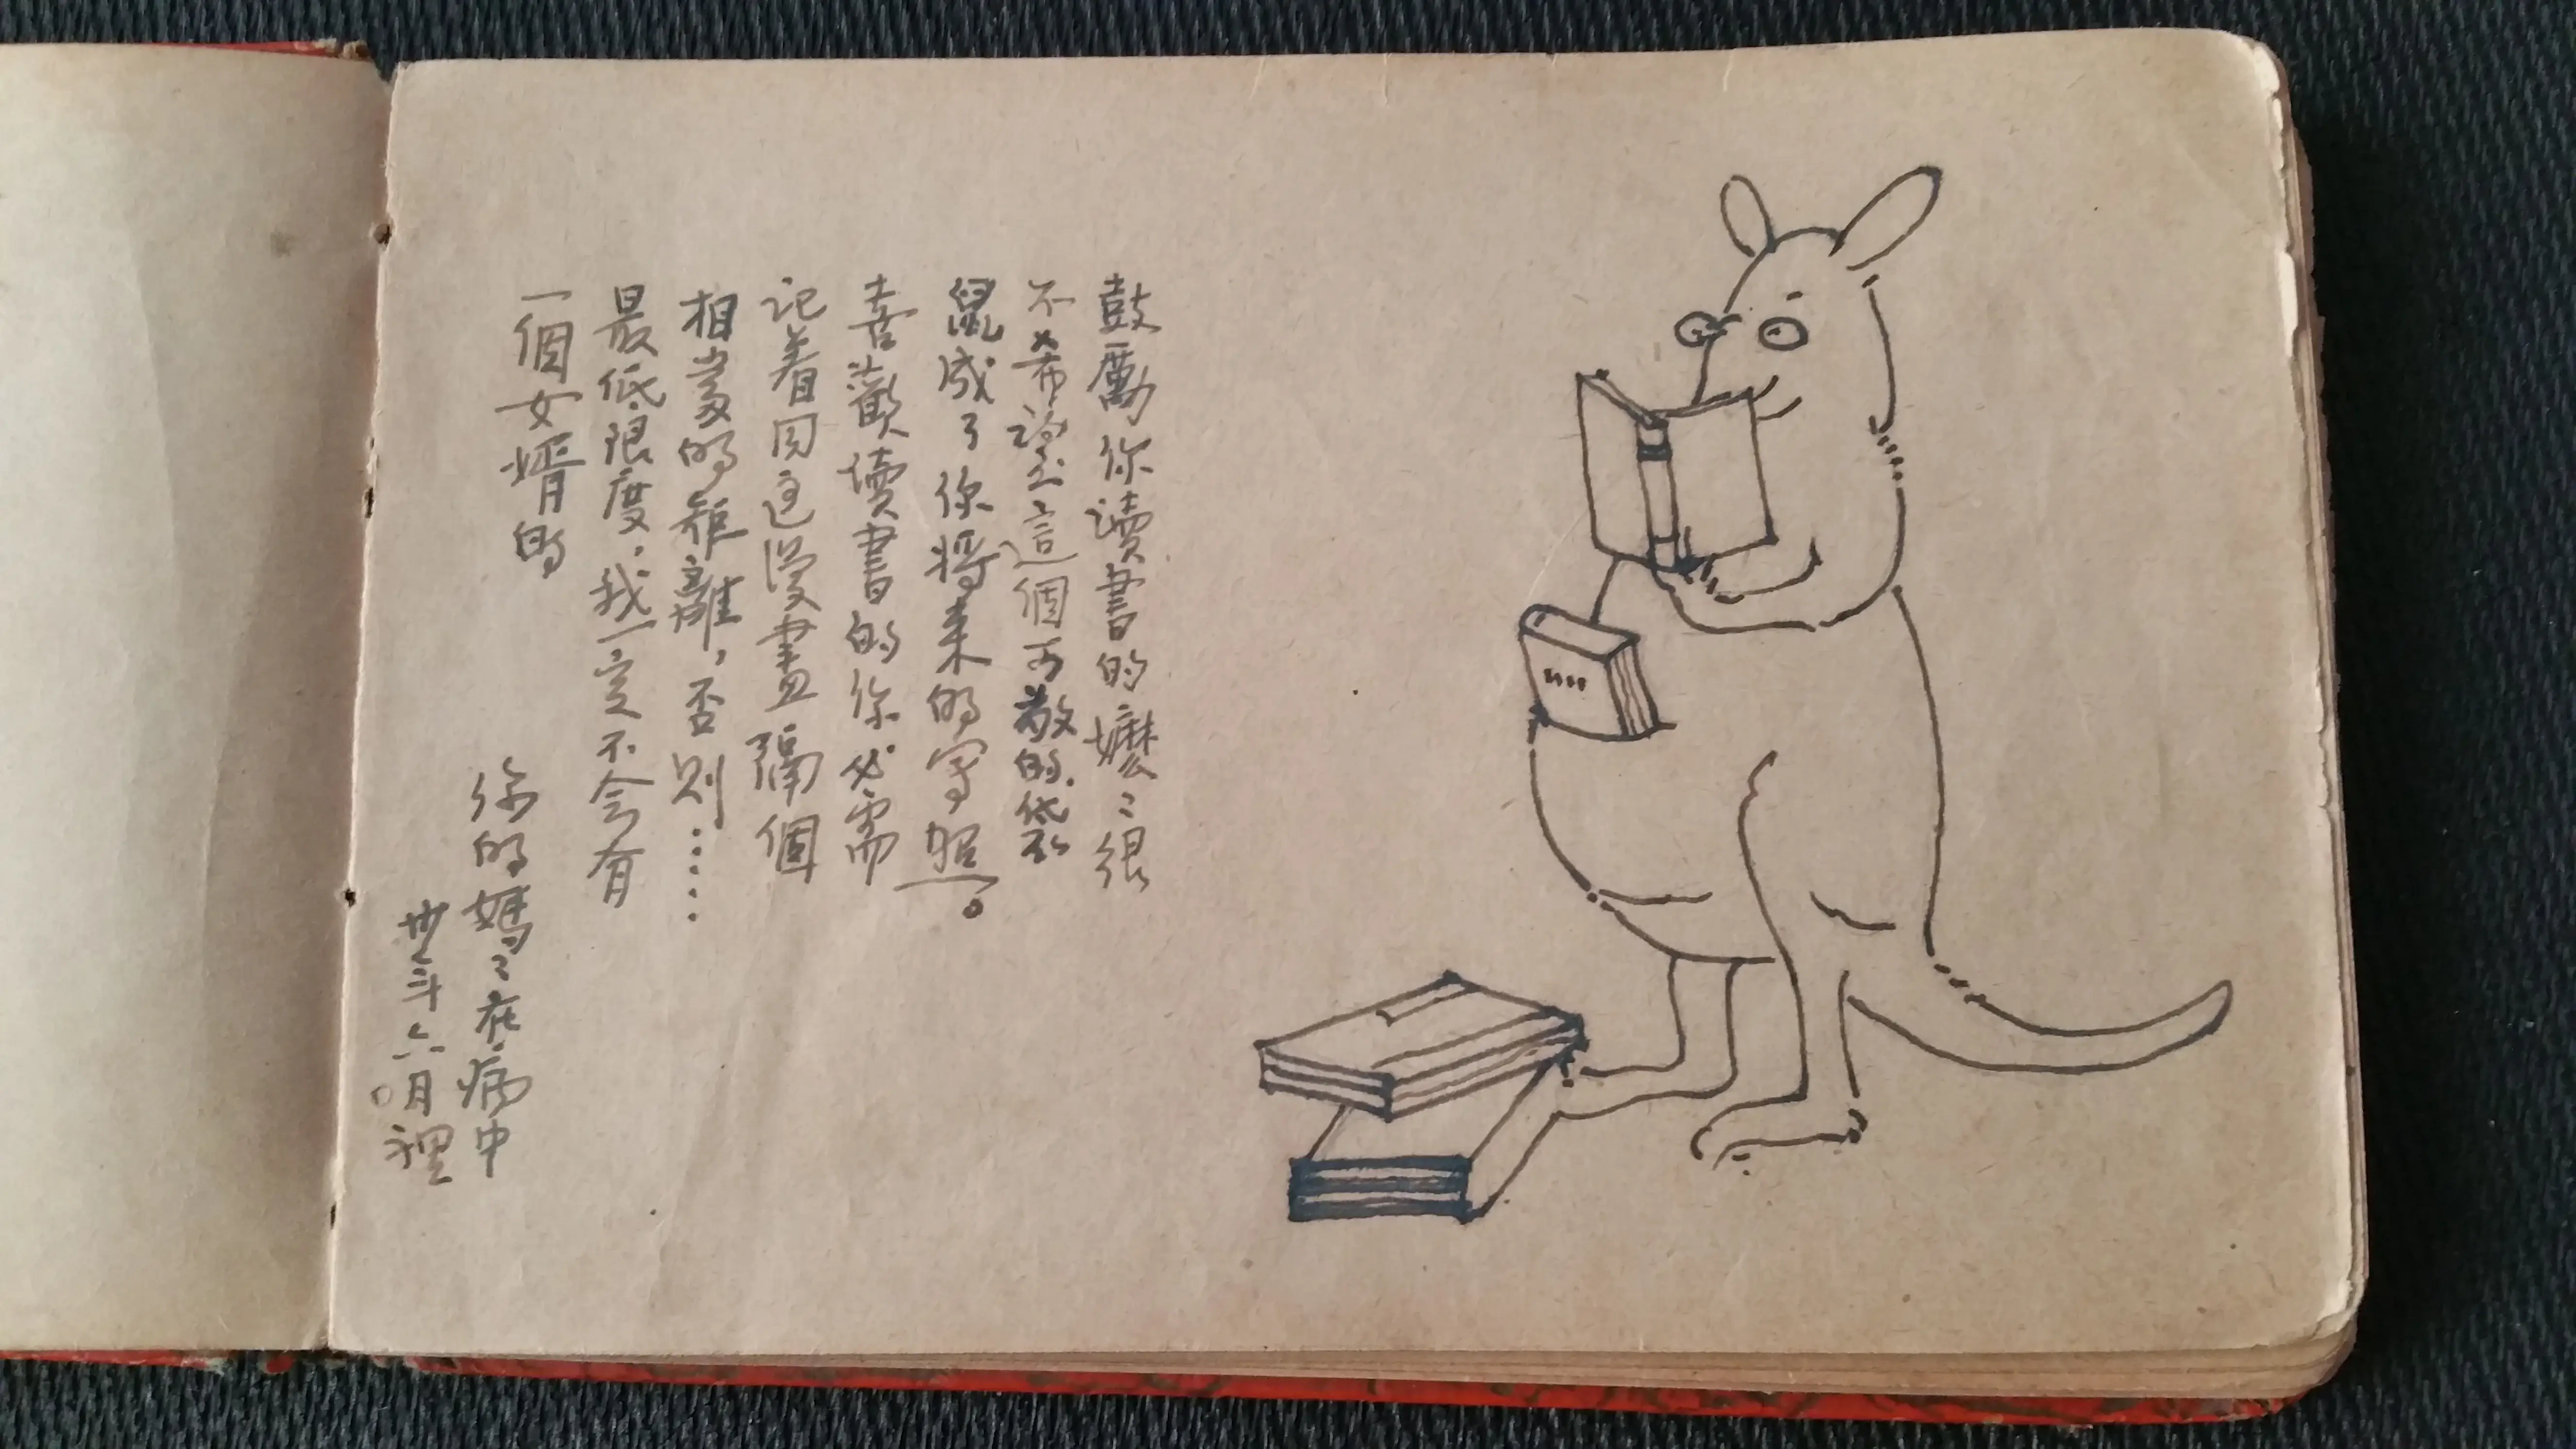 鼓勵你讀書的嬤〻很
不希望這個可敬的袋
鼠成了你將來的寫照。
喜歡讀書的你必需
記着同這漫畫隔個
相當的距離，否則……
最低限度，我一定不会有
一個女婿的
你的媽〻在病中
六月裡